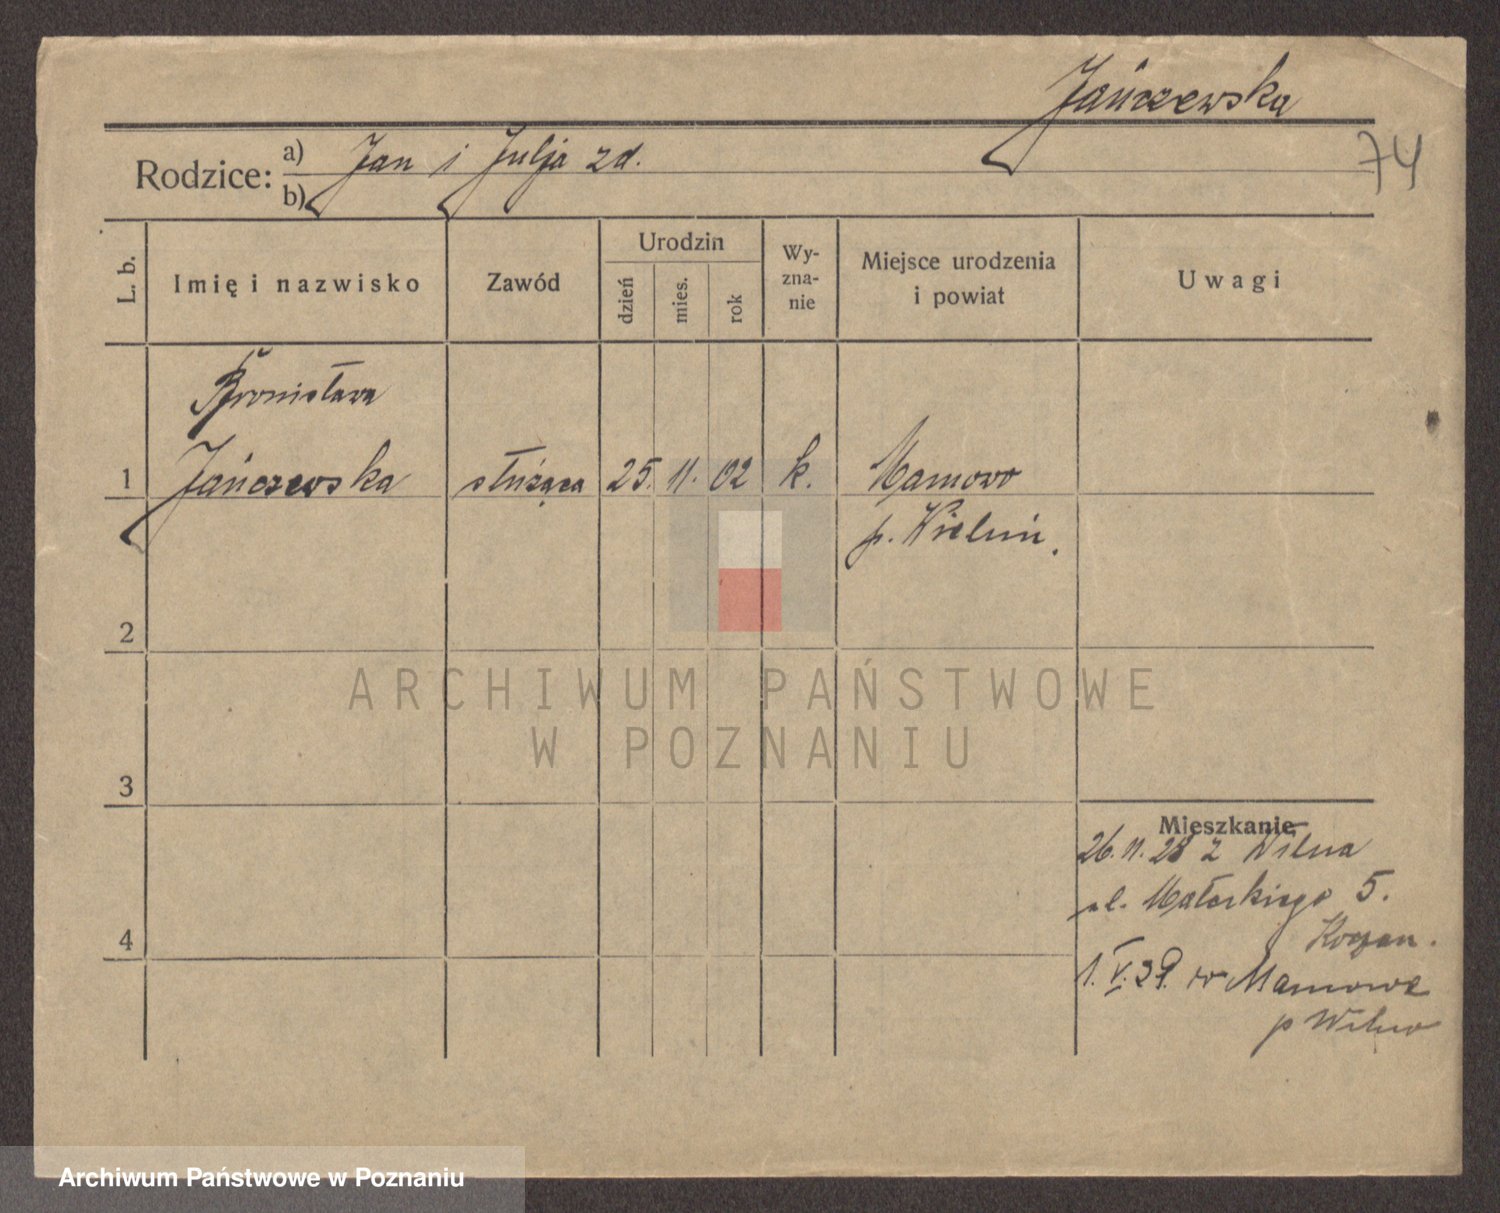 Jańczewska
74
Rodzice: a) Jan i Julja zd.
b)
L. b.
Imię i nazwisko
Zawód
Urodzin
dzień
mies.
rok
Wy-
zna-
nie
Miejsce urodzenia
i powiat
Uwagi
Bronisława
1 Jańczewska służąca 25. 11. 02 k. Mamowo
p. Wieluń.
2
ARCHIWUM PAŃSTWOWE
W POZNANIU
3
Mieszkanie
26. 11. 28 z Wilna
ul. Małeckiego 5.
4
1. V. 29. w Mamowe
p Wilno
Archiwum Państwowe w Poznaniu